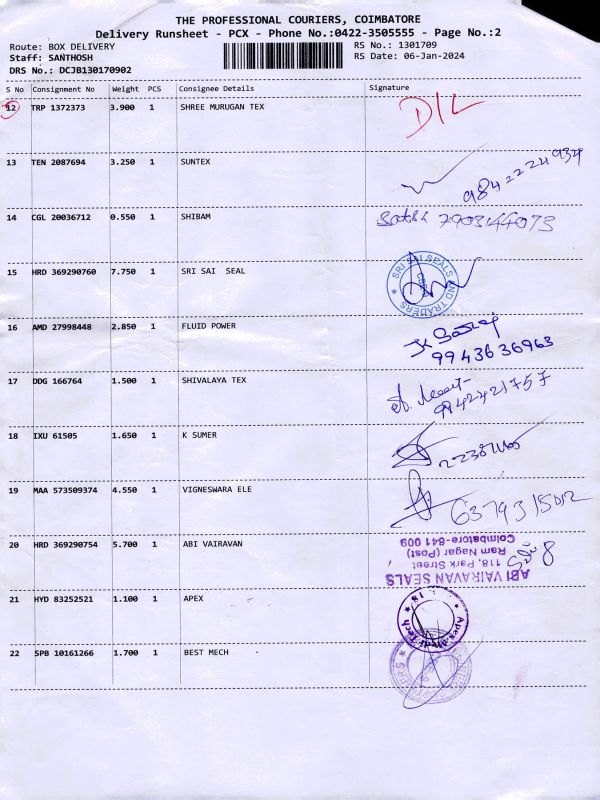 THE PROFESSIONAL COURIERS, COIMBATORE
Delivery Runsheet - PCX - Phone No.:0422-3505555 - Page No.:2
Route: BOX DELIVERY RS No.: 1301709
Staff: SANTHOSH RS Date: 06-Jan-2024
DRS No.: DCJB130170902
S No Consignment No Weight PCS Consignee Details Signature
12 TRP 1372373 3.900 1 SHREE MURUGAN TEX D/L
13 TEN 2087694 3.250 1 SUNTEX 9842224934
14 CGL 20036712 0.550 1 SHIBAM 7903144073
15 HRD 369290760 7.750 1 SRI SAI SEAL
SRI SAI SEALS AND TRADERS
16 AMD 27998448 2.850 1 FLUID POWER
9943636963
17 DDG 166764 1.500 1 SHIVALAYA TEX
18 IXU 61505 1.650 1 K SUMER
19 MAA 573509374 4.550 1 VIGNESWARA ELE
20 HRD 369290754 5.700 1 ABI VAIRAVAN
ABI VAIRAVAN SEALS
118, Park Street
Ram Nagar (Post)
Coimbatore-641 009
21 HYD 83252521 1.100 1 APEX
22 SPB 10161266 1.700 1 BEST MECH